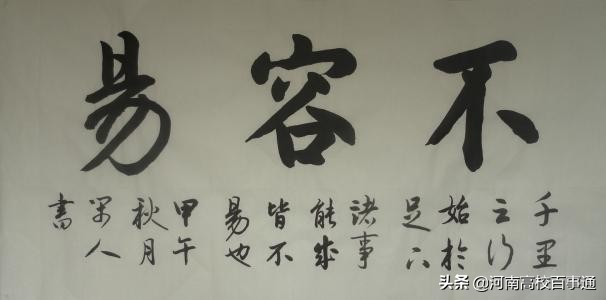 不容易
千里
之行
始於
足下
諸事
能成
皆不
易也
甲午
秋月
人
書
头条 @河南高校百事通